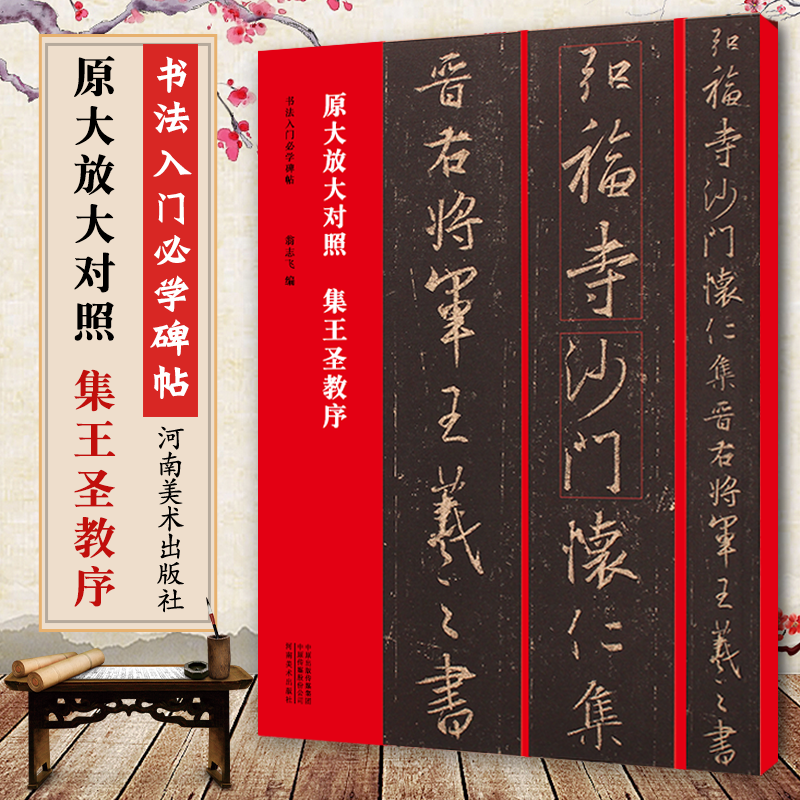 书法入门必学碑帖
原大放大对照 集王圣教序
河南美术出版社
原大放大对照 集王圣教序
书法入门必学碑帖 翁志飞 编
中原出版传媒集团
中原传媒股份公司
河南美术出版社
弘福寺沙门懷仁集晋右将軍王羲之書
弘福寺沙门懷仁集
晋右将軍王羲之書